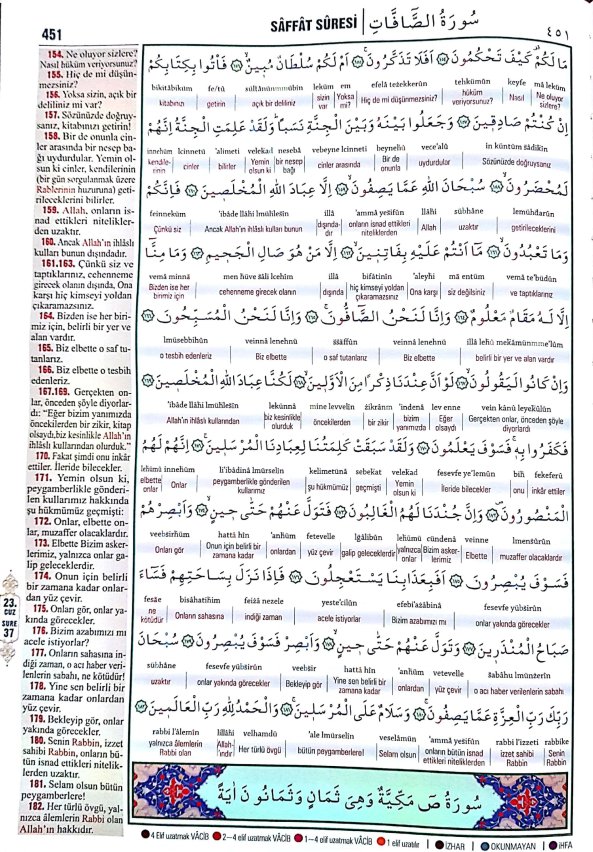 451
SÂFFÂT SÛRESİ
سُورَةُ الصَّافَّاتِ
٤٥١
154. Ne oluyor sizlere?
Nasıl hüküm veriyorsunuz?
155. Hiç de mi düşün-
mezsiniz?
156. Yoksa sizin, açık bir
deliliniz mi var?
157. Sözünüzde doğruy-
sanız, kitabınızı getirin!
158. Bir de onunla cin-
ler arasında bir nesep ba-
ğı uydurdular. Yemin ol-
sun ki cinler, kendilerinin
(bir gün sorgulanmak üzere
Rablerinin huzuruna) geti-
rileceklerini bilirler.
159. Allah, onların is-
nad ettikleri nitelikler-
den uzaktır.
160. Ancak Allah'ın ihlâslı
kulları bunun dışındadır.
161.163. Çünkü siz ve
taptıklarınız, cehenneme
girecek olanın dışında, Ona
karşı hiç kimseyi yoldan
çıkaramazsınız.
164. Bizden ise her biri-
miz için, belirli bir yer ve
alan vardır.
165. Biz elbette o saf tu-
tanlarız.
166. Biz elbette o tesbih
edenleriz.
167.169. Gerçekten on-
lar, önceden şöyle diyorlar-
dı: "Eğer bizim yanımızda
öncekilerden bir zikir, kitap
olsaydı,biz kesinlikle Allah'ın
ihlâslı kullarından olurduk."
170. Fakat şimdi onu inkâr
ettiler. İleride bilecekler.
171. Yemin olsun ki,
peygamberlikle gönderi-
len kullarımız hakkında
şu hükmümüz geçmişti:
172. Onlar, elbette on-
lar, muzaffer olacaklardır.
173. Elbette Bizim asker-
lerimiz, yalnızca onlar ga-
lip geleceklerdir.
174. Onun için belirli
bir zamana kadar onlar-
dan yüz çevir.
175. Onları gör, onlar ya-
kında görecekler.
176. Bizim azabımızı mı
acele istiyorlar?
177. Onların sahasına in-
diği zaman, o acı haber veri-
lenlerin sabahı, ne kötüdür!
178. Yine sen belirli bir
zamana kadar onlardan
yüz çevir.
179. Bekleyip gör, onlar
yakında görecekler.
180. Senin Rabbin, izzet
sahibi Rabbin, onların bü-
tün isnad ettikleri nitelik-
lerden uzaktır.
181. Selam olsun bütün
peygamberlere!
182. Her türlü övgü, yal-
nızca âlemlerin Rabbi olan
Allah'ın hakkıdır.
23.
CUZ
SURE
37
مَا لَكُمْ كَيْفَ تَحْكُمُونَ ﴿١٥٤﴾ اَفَلَا تَذَكَّرُونَ ﴿١٥٥﴾ اَمْ لَكُمْ سُلْطَانٌ مُبِينٌ ﴿١٥٦﴾ فَأْتُوا بِكِتَابِكُمْ
bikitâbiküm fe/tû sültânünmübîn leküm em efelâ tezekkerûn tehkümûn keyfe mâ leküm
kitabınızı getirin açık bir deliliniz sizin var Yoksa mı? Hiç de mi düşünmezsiniz? hüküm veriyorsunuz? Nasıl Ne oluyor sizlere?
اِنْ كُنْتُمْ صَادِقِينَ ﴿١٥٧﴾ وَجَعَلُوا بَيْنَهُ وَبَيْنَ الْجِنَّةِ نَسَبًا وَلَقَدْ عَلِمَتِ الْجِنَّةُ اِنَّهُمْ
innehüm lcinnetü 'alimeti velekad nesebâ vebeyne lcinneti beynehû vece'alû in küntüm sâdikîn
kendile-rinin cinler bilirler Yemin olsun ki bir nesep bağı cinler arasında Bir de onunla uydurdular Sözünüzde doğruysanız
لَمُحْضَرُونَ ﴿١٥٨﴾ سُبْحَانَ اللهِ عَمَّا يَصِفُونَ ﴿١٥٩﴾ اِلَّا عِبَادَ اللهِ الْمُخْلَصِينَ ﴿١٦٠﴾ فَاِنَّكُمْ
feinneküm 'ibâde llâhi lmuhlesîn illâ 'ammâ yesifûn llâhi sübhâne lemühdarûn
Çünkü siz Ancak Allah'ın ihlâslı kulları bunun dışında-dır onların isnad ettikleri niteliklerden Allah uzaktır getirileceklerini
وَمَا تَعْبُدُونَ ﴿١٦١﴾ مَا اَنْتُمْ عَلَيْهِ بِفَاتِنِينَ ﴿١٦٢﴾ اِلَّا مَنْ هُوَ صَالِ الْجَحِيمِ ﴿١٦٣﴾ وَمَا مِنَّا
vemâ minnâ men hüve sâli lcehîm illâ bifâtinîn 'aleyhi mâ entüm vemâ te'budûn
Bizden ise her birimiz için cehenneme girecek olanın dışında hiç kimseyi yoldan çıkaramazsınız Ona karşı siz değilsiniz ve taptıklarınız
اِلَّا لَهُ مَقَامٌ مَعْلُومٌ ﴿١٦٤﴾ وَاِنَّا لَنَحْنُ الصَّافُّونَ ﴿١٦٥﴾ وَاِنَّا لَنَحْنُ الْمُسَبِّحُونَ ﴿١٦٦﴾
lmüsebbihûn veinnâ lenehnü ssâffûn veinnâ lenehnü illâ lehû mekâmünme'lûm
o tesbih edenleriz Biz elbette o saf tutanlarız Biz elbette belirli bir yer ve alan vardır
وَاِنْ كَانُوا لَيَقُولُونَ ﴿١٦٧﴾ لَوْ اَنَّ عِنْدَنَا ذِكْرًا مِنَ الْاَوَّلِينَ ﴿١٦٨﴾ لَكُنَّا عِبَادَ اللهِ الْمُخْلَصِينَ ﴿١٦٩﴾
'ibâde llâhi lmuhlesîn lekünnâ mine levvelîn zikrânm 'indenâ lev enne vein kânû leyekûlûn
Allah'ın ihlâslı kullarından biz kesinlikle olurduk öncekilerden bir zikir bizim yanımızda Eğer olsaydı Gerçekten onlar, önceden şöyle diyorlardı
فَكَفَرُوا بِهِ فَسَوْفَ يَعْلَمُونَ ﴿١٧٠﴾ وَلَقَدْ سَبَقَتْ كَلِمَتُنَا لِعِبَادِنَا الْمُرْسَلِينَ ﴿١٧١﴾ اِنَّهُمْ لَهُمُ
lehümü innehüm li'ibâdinâ lmürselîn kelimetünâ sebekat velekad fesevfe ye'lemûn bih fekeferû
elbette onlar Onlar peygamberlikle gönderilen kullarımız şu hükmümüz geçmişti Yemin olsun ki İleride bilecekler onu inkâr ettiler
الْمَنْصُورُونَ ﴿١٧٢﴾ وَاِنَّ جُنْدَنَا لَهُمُ الْغَالِبُونَ ﴿١٧٣﴾ فَتَوَلَّ عَنْهُمْ حَتَّى حِينٍ ﴿١٧٤﴾ وَاَبْصِرْهُمْ
veebsirhüm hattâ hîn 'anhüm fetevelle lgâlibûn lehümü cündenâ veinne lmensûrûn
Onları gör Onun için belirli bir zamana kadar onlardan yüz çevir galip geleceklerdir yalnızca onlar Bizim askerlerimiz Elbette muzaffer olacaklardır
فَسَوْفَ يُبْصِرُونَ ﴿١٧٥﴾ اَفَبِعَذَابِنَا يَسْتَعْجِلُونَ ﴿١٧٦﴾ فَاِذَا نَزَلَ بِسَاحَتِهِمْ فَسَاءَ
fesâe bisâhatihim feizâ nezele yeste'cilûn efebi'azâbinâ fesevfe yübsirûn
ne kötüdür Onların sahasına indiği zaman acele istiyorlar Bizim azabımızı mı onlar yakında görecekler
صَبَاحُ الْمُنْذَرِينَ ﴿١٧٧﴾ وَتَوَلَّ عَنْهُمْ حَتَّى حِينٍ ﴿١٧٨﴾ وَاَبْصِرْ فَسَوْفَ يُبْصِرُونَ ﴿١٧٩﴾ سُبْحَانَ
sübhâne fesevfe yübsirûn veebsir hattâ hîn 'anhüm vetevelle sabâhu lmünzerîn
uzaktır onlar yakında görecekler Bekleyip gör Yine sen belirli bir zamana kadar onlardan yüz çevir o acı haber verilenlerin sabahı
رَبِّكَ رَبِّ الْعِزَّةِ عَمَّا يَصِفُونَ ﴿١٨٠﴾ وَسَلَامٌ عَلَى الْمُرْسَلِينَ ﴿١٨١﴾ وَالْحَمْدُ لِلّٰهِ رَبِّ الْعَالَمِينَ ﴿١٨٢﴾
rabbi l'âlemîn lillâhi velhamdü 'ale lmürselîn veselâmün 'ammâ yesifûn rabbi l'izzeti rabbike
yalnızca âlemlerin Rabbi olan Allah-ındır Her türlü övgü bütün peygamberlere! Selam olsun onların bütün isnad ettikleri niteliklerden izzet sahibi Rabbin Senin Rabbin,
سُورَةُ صٓ مَكِّيَّةٌ وَهِيَ ثَمَانٍ وَثَمَانُونَ اٰيَةً
4 Elif uzatmak VÂCİB 2–4 elif uzatmak VÂCİB 1–4 elif uzatmak VÂCİB 1 elif uzatılır İZHAR OKUNMAYAN İHFA